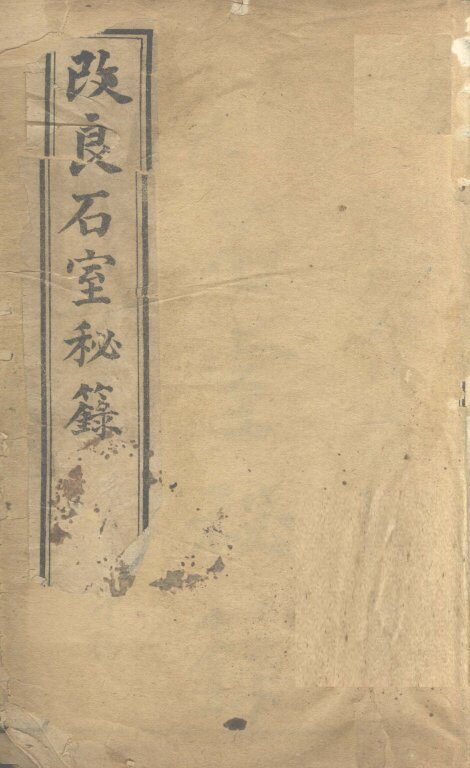 改良石室秘籙